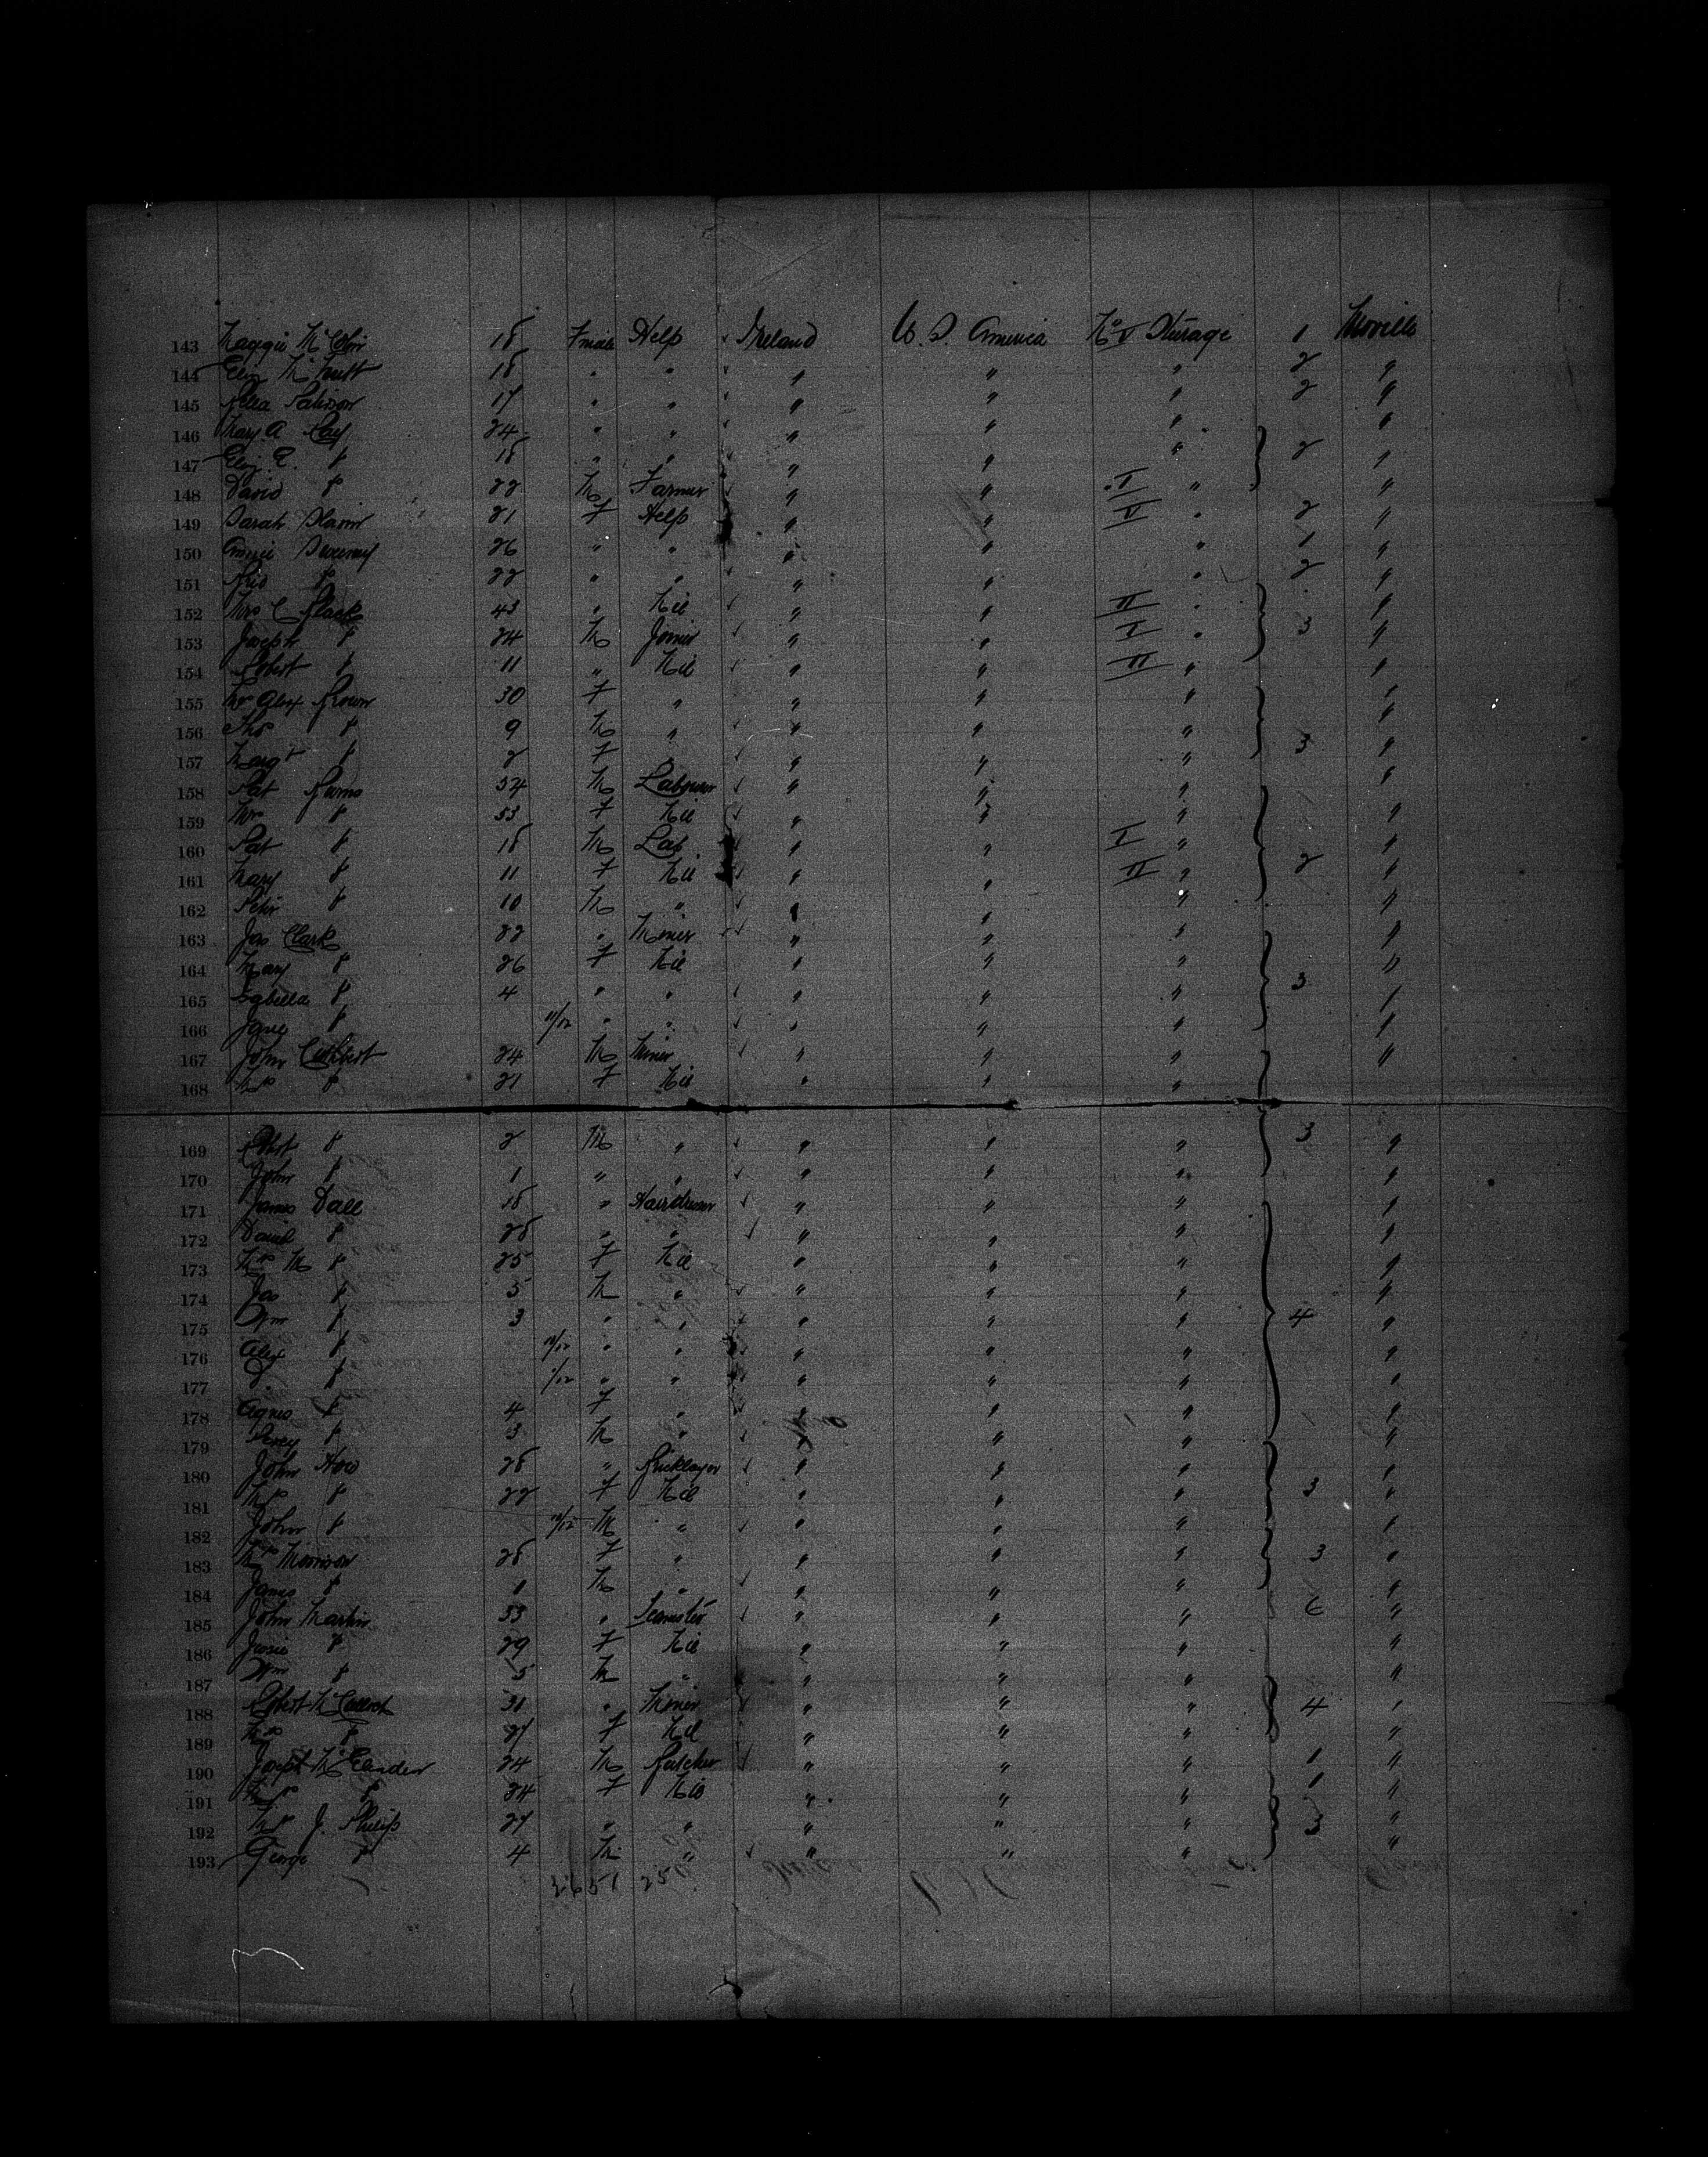 143 Maggie Mc 18 Female Help Ireland U. S. America No II Sterage 1 Moville
144 Eliz Mc 18 " " " " " 2 "
145 Bella 17 " " " " " 2 "
146 Mary A 24 " " " " " "
147 Eliz. E. " 18 " " " " " 2 "
148 David " 22 M Farmer " " I " "
149 Sarah 21 F Help " " II " 2 "
150 Annie Sweeney 26 " " " " " 1 "
151 " 22 " " " " " 2 "
152 Mrs C Black 43 " Nil " " II " "
153 Joseph " 24 M Joiner " " I " 3 "
154 Robert " 11 " Nil " " II " "
155 Mrs Alex Brown 30 F " " " " "
156 Thos " 9 M " " " " "
157 Margt " 2 F " " " " 3 "
158 Pat Burns 54 M Labourer " " " "
159 Mrs " 53 F Nil " " " "
160 Pat " 18 M Lab " " I " "
161 Mary " 11 F Nil " " II " 2 "
162 Peter " 10 M " " " " "
163 Jas Clark 22 " Miner " " " "
164 Mary " 26 F Nil " " " "
165 Isabella " 4 " " " " " 3 "
166 Jane " 11/12 " " " " " "
167 John Cuthbert 24 M Miner " " " "
168 Mrs " 21 F Nil " " "
169 Robert " 2 M " " " " 3 "
170 John " 1 " " " " " "
171 James Dall 58 " Hairdresser " " " "
172 David " 28 " " " " " "
173 Mrs M " 25 F Nil " " " "
174 Jas " 5 M " " " " "
175 Wm " 3 " " " " " 4 "
176 Alex " /12 " " " " " "
177 " /12 " " " " " "
178 Agnes " 4 F " " " " "
179 " 3 M " " " " "
180 John How 28 " Bricklayer " " " "
181 Mrs " 22 F Nil " " " 3 "
182 John " 10/12 M " " " " "
183 Mrs Morrison 28 F " " " " 3 "
184 James " 1 M " " " " "
185 John Martin 33 " Teamster " " " 6 "
186 Jessie " 29 F Nil " " " "
187 Wm " 5 M " " " " "
188 Robert McCulloch 31 " Miner " " " 4 "
189 Mrs " 27 F Nil " " " "
190 Joseph Mc 24 M Butcher " " " 1 "
191 Mrs " 24 F Nil " " " 1 "
192 Mrs J. Philips 27 " " " " " 3 "
193 George " 4 M " " " " "